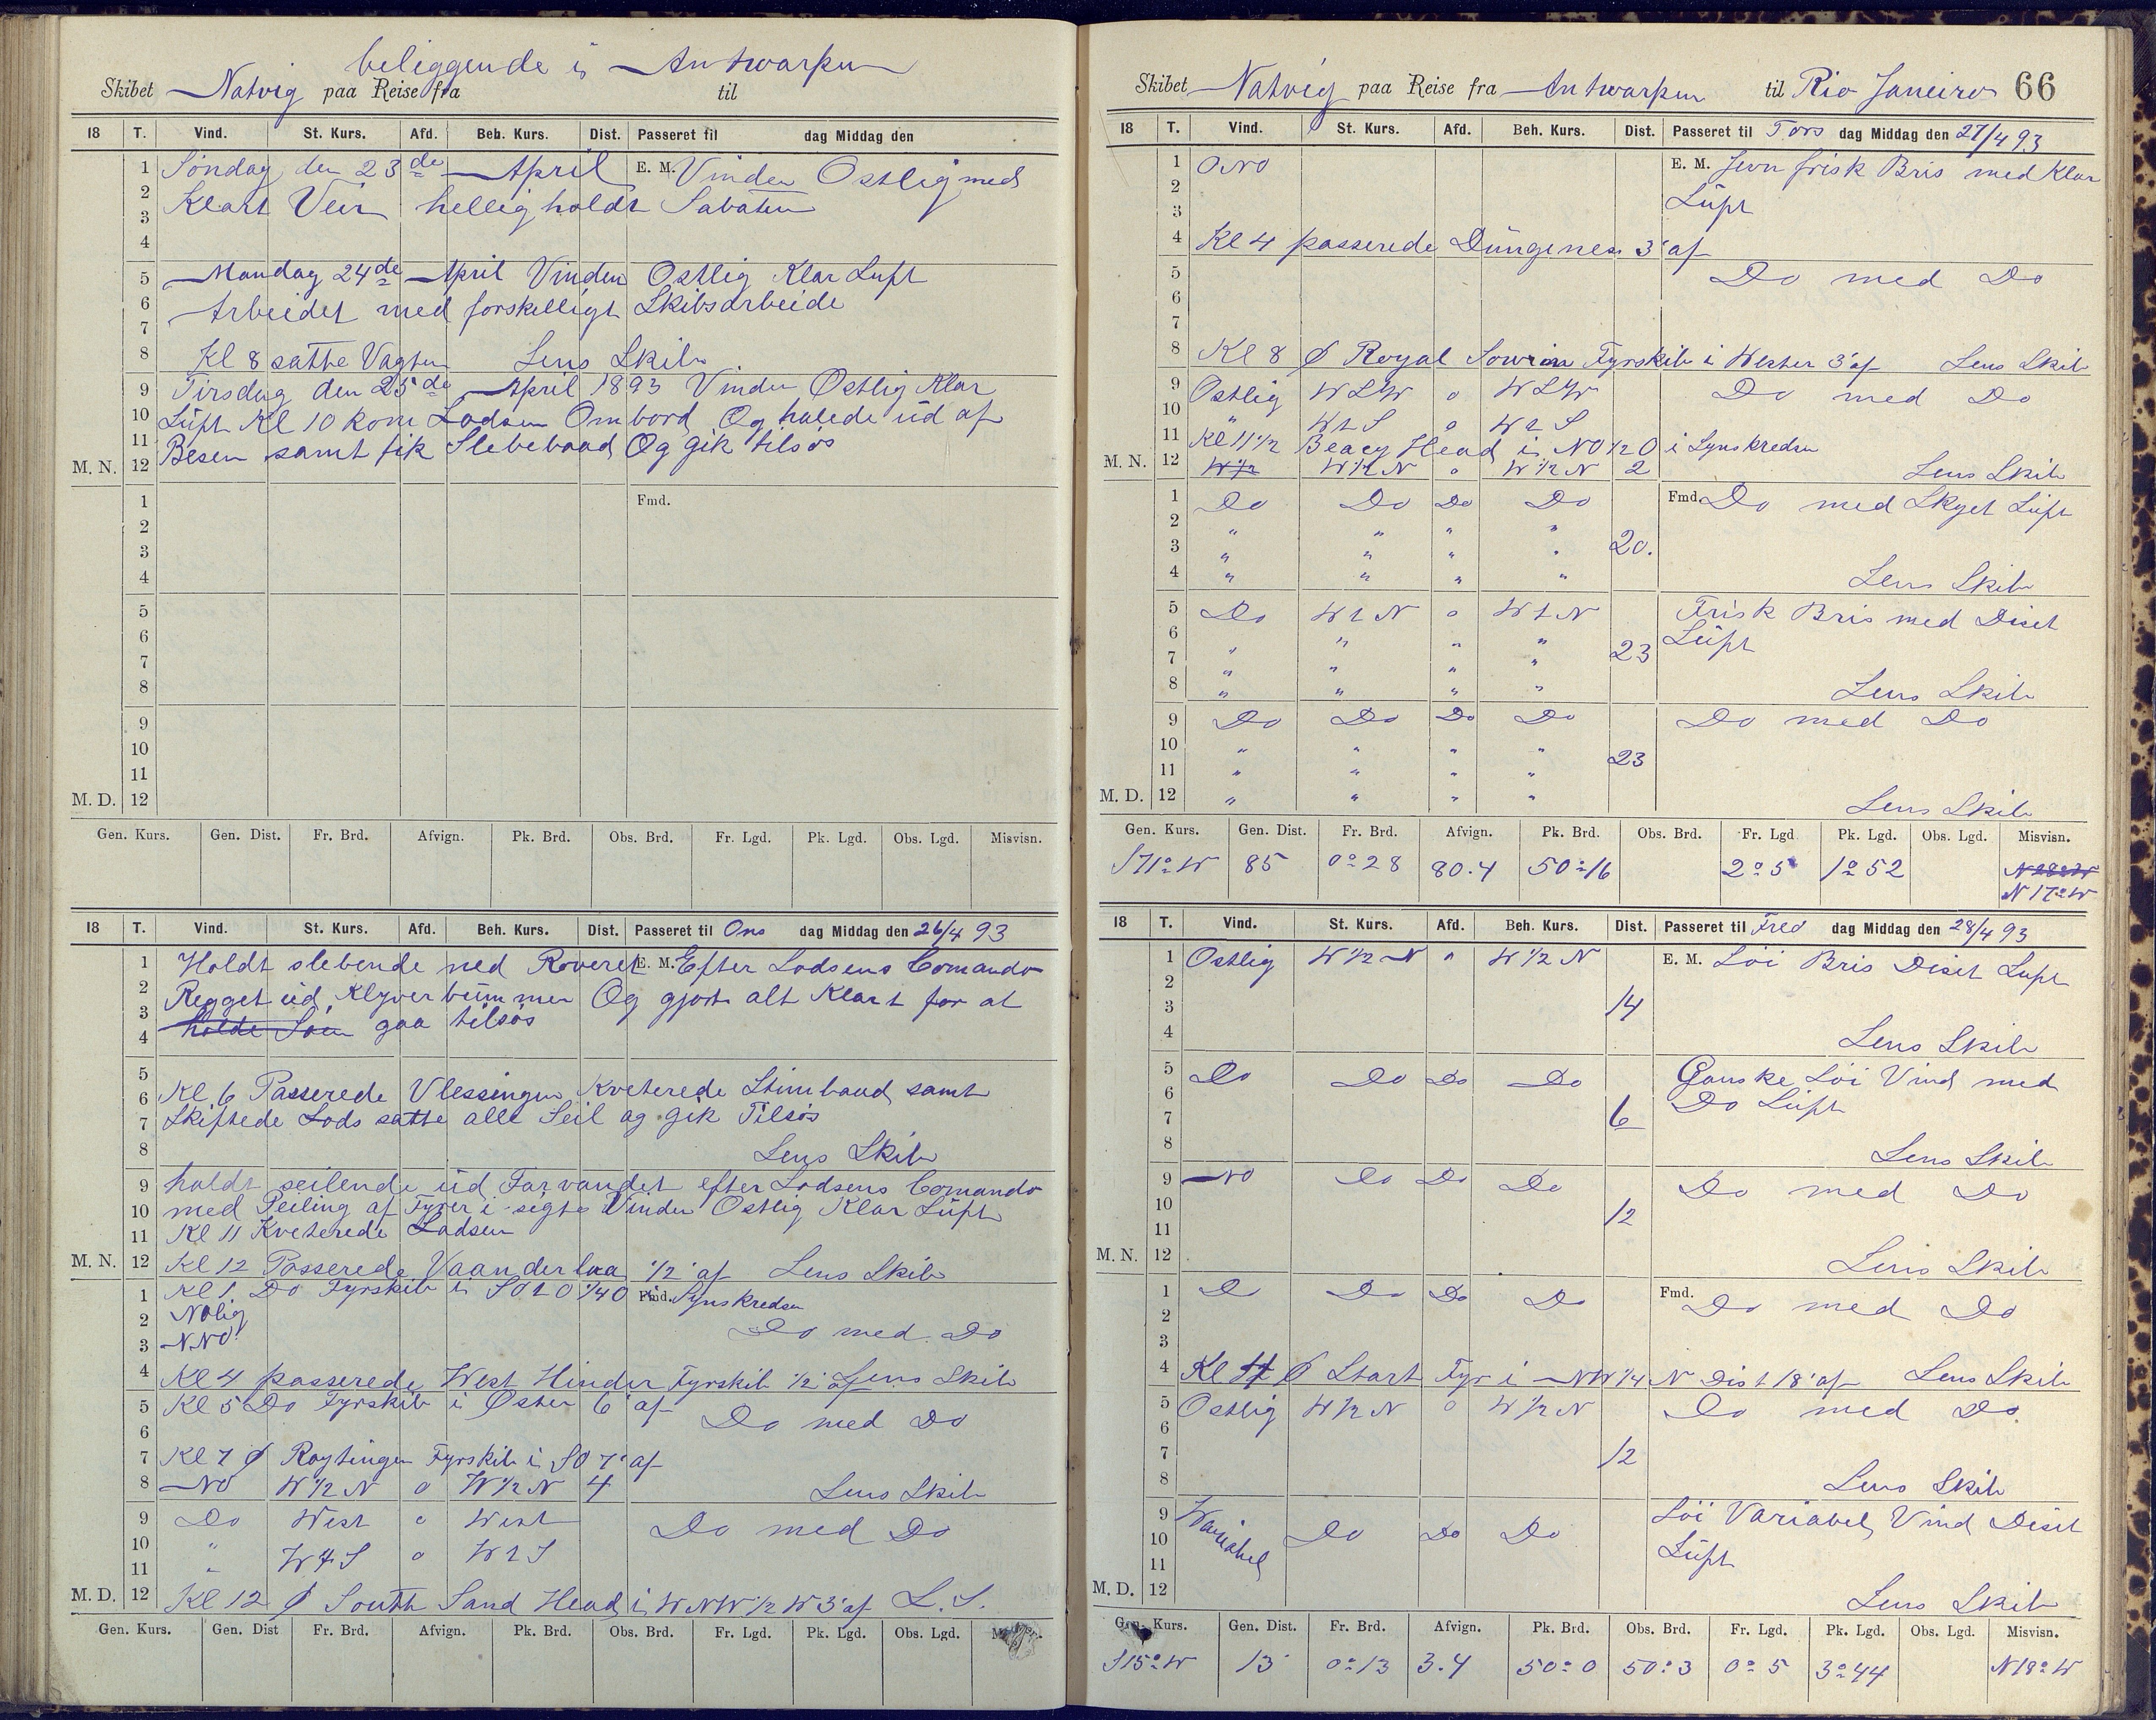 beliggende i Antwarpen
Skibet Natvig paa Reise fra til
18 T. Vind. St. Kurs. Afd. Beh. Kurs. Dist. Passeret til dag Middag den
1 Søndag den 23de April E. M. Vinden Ostlig med
2 Klart Veir helligholdt Sabaten
3
4
5 Mandag 24de April Vinden Ostlig Klar Luft
6 Arbeidet med forskelligt Skibsarbeide
7
8 Kl 8 satte Vagten Lens Skib
9 Tirsdag den 25de April 1893 Vinden Østlig Klar
10 Luft Kl 10 kom Lodsen Ombord Og halede ud af
11 Besen samt fik Slebebaad Og gik tilsøs
M. N. 12
1 Fmd.
2
3
4
5
6
7
8
9
10
11
M. D. 12
Gen. Kurs. Gen. Dist. Fr. Brd. Afvign. Pk. Brd. Obs. Brd. Fr. Lgd. Pk. Lgd. Obs. Lgd. Misvisn.
18 T. Vind. St. Kurs. Afd. Beh. Kurs. Dist. Passeret til Ons dag Middag den 26/4 93
1 Holdt slebende ned Roveret E. M. Efter Lodsens Comando
2 Regget ud Klyverbummen Og gjort alt Klart for at
3 holde Søen gaa tilsøs
4
5
6 Kl 6 Passerede Vlessingen Kveterede Stimbaad samt
7 Skiftede Lods satte alle Seil og gik Tilsøs
8 Lens Skib
9 holdt seilende ud Farvandet efter Lodsens Comando
10 med Peiling af Fyrer i sigte Vinden Ostlig Klar Luft
11 Kl 11 Kveterede Lodsen
M. N. 12 Kl 12 Passerede Vaanderlaa 1/2' af Lens Skib
1 Kl 1 Do Fyrskib i SO t O 1/4 O Fmd. i Synskredsen
2 NOlig Do med Do
3 NNO
4 Kl 4 passerede West Hinder Fyrskib 1/2' af Lens Skib
5 Kl 5 Do Fyrskib i Øster 6' af
6 Do med Do
7 Kl 7 Ø Roytingen Fyrskib i SO 7' af
8 NO W 1/2 N 0 W 1/2 N 4 Lens Skib
9 Do West 0 West Do med Do
10 " W t S 0 W t S
11 "
M. D. 12 Kl 12 Ø South Sand Head i WNW 1/2 W 3' af L. S.
Gen. Kurs. Gen. Dist Fr. Brd. Afvign. Pk. Brd. Obs. Brd. Fr. Lgd. Pk. Lgd. Obs. Lgd.
Skibet Natvig paa Reise fra Antwarpen til Rio Janeiro 66
18 T. Vind. St. Kurs. Afd. Beh. Kurs. Dist. Passeret til Tors dag Middag den 27/4 93
1 ONO E. M. Jevn frisk Bris med Klar
2 Luft
3
4 Kl 4 passerede Dungenes 3' af
5 Do med Do
6
7
8 Kl 8 Ø Royal Fyrskib i Wester 3' af Lens Skib
9 Ostlig W 0 W Do med Do
10 " W t S 0 W t S
11 Kl 11 1/2 Beacy Head i NO 1/2 O i Synskredsen
M. N. 12 W 1/2 W 1/2 N 0 W 1/2 N 2 Lens Skib
1 Do Do Do Do Fmd. Do med Skyet Luft
2 " " " "
3 " " " " 20.
4 " " " " Lens Skib
5 Do W t N 0 W t N Frisk Bris med Diset
6 " " " " Luft
7 " " " " 23
8 " " " " Lens Skib
9 Do Do Do Do Do med Do
10 " " " " 23
11 " " " "
M. D. 12 " " " " Lens Skib
Gen. Kurs. Gen. Dist. Fr. Brd. Afvign. Pk. Brd. Obs. Brd. Fr. Lgd Pk. Lgd. Obs. Lgd. Misvisn.
S 71° W 85 0° 28 80.4 50° 16 2° 5 1° 52 N 28° W
N 17° W
18 T. Vind. St. Kurs. Afd. Beh. Kurs. Dist. Passeret til Fred dag Middag den 28/4 93
1 Ostlig W 1/2 N 0 W 1/2 N E. M. Løi Bris Diset Luft
2
3 14
4 Lens Skib
5 Do Do Do Do Ganske Løi Vind med
6 Do Luft
7 6
8 Lens Skib
9 NO Do Do Do Do med Do
10 12
11
M. N. 12 Lens Skib
1 Do Do Do Do Fmd. Do med Do
2
3
4 Kl 4 Ø Start Fyr i NW 1/4 N Dist 18' af Lens Skib
5 Ostlig W 1/2 N 0 W 1/2 N Do med Do
6
7 12
8 Lens Skib
9 Wariabel Do Do Do Løi Variabel Vind Diset
10 Luft
11
M. D. 12 Lens Skib
Gen. Kurs. Gen. Dist. Fr. Brd. Afvign. Pk. Brd. Obs. Brd. Fr. Lgd. Pk. Lgd. Obs. Lgd. Misvisn.
S 15° W 13 0° 13 3.4 50° 0 50° 3 0° 5 3° 44 N 19° W